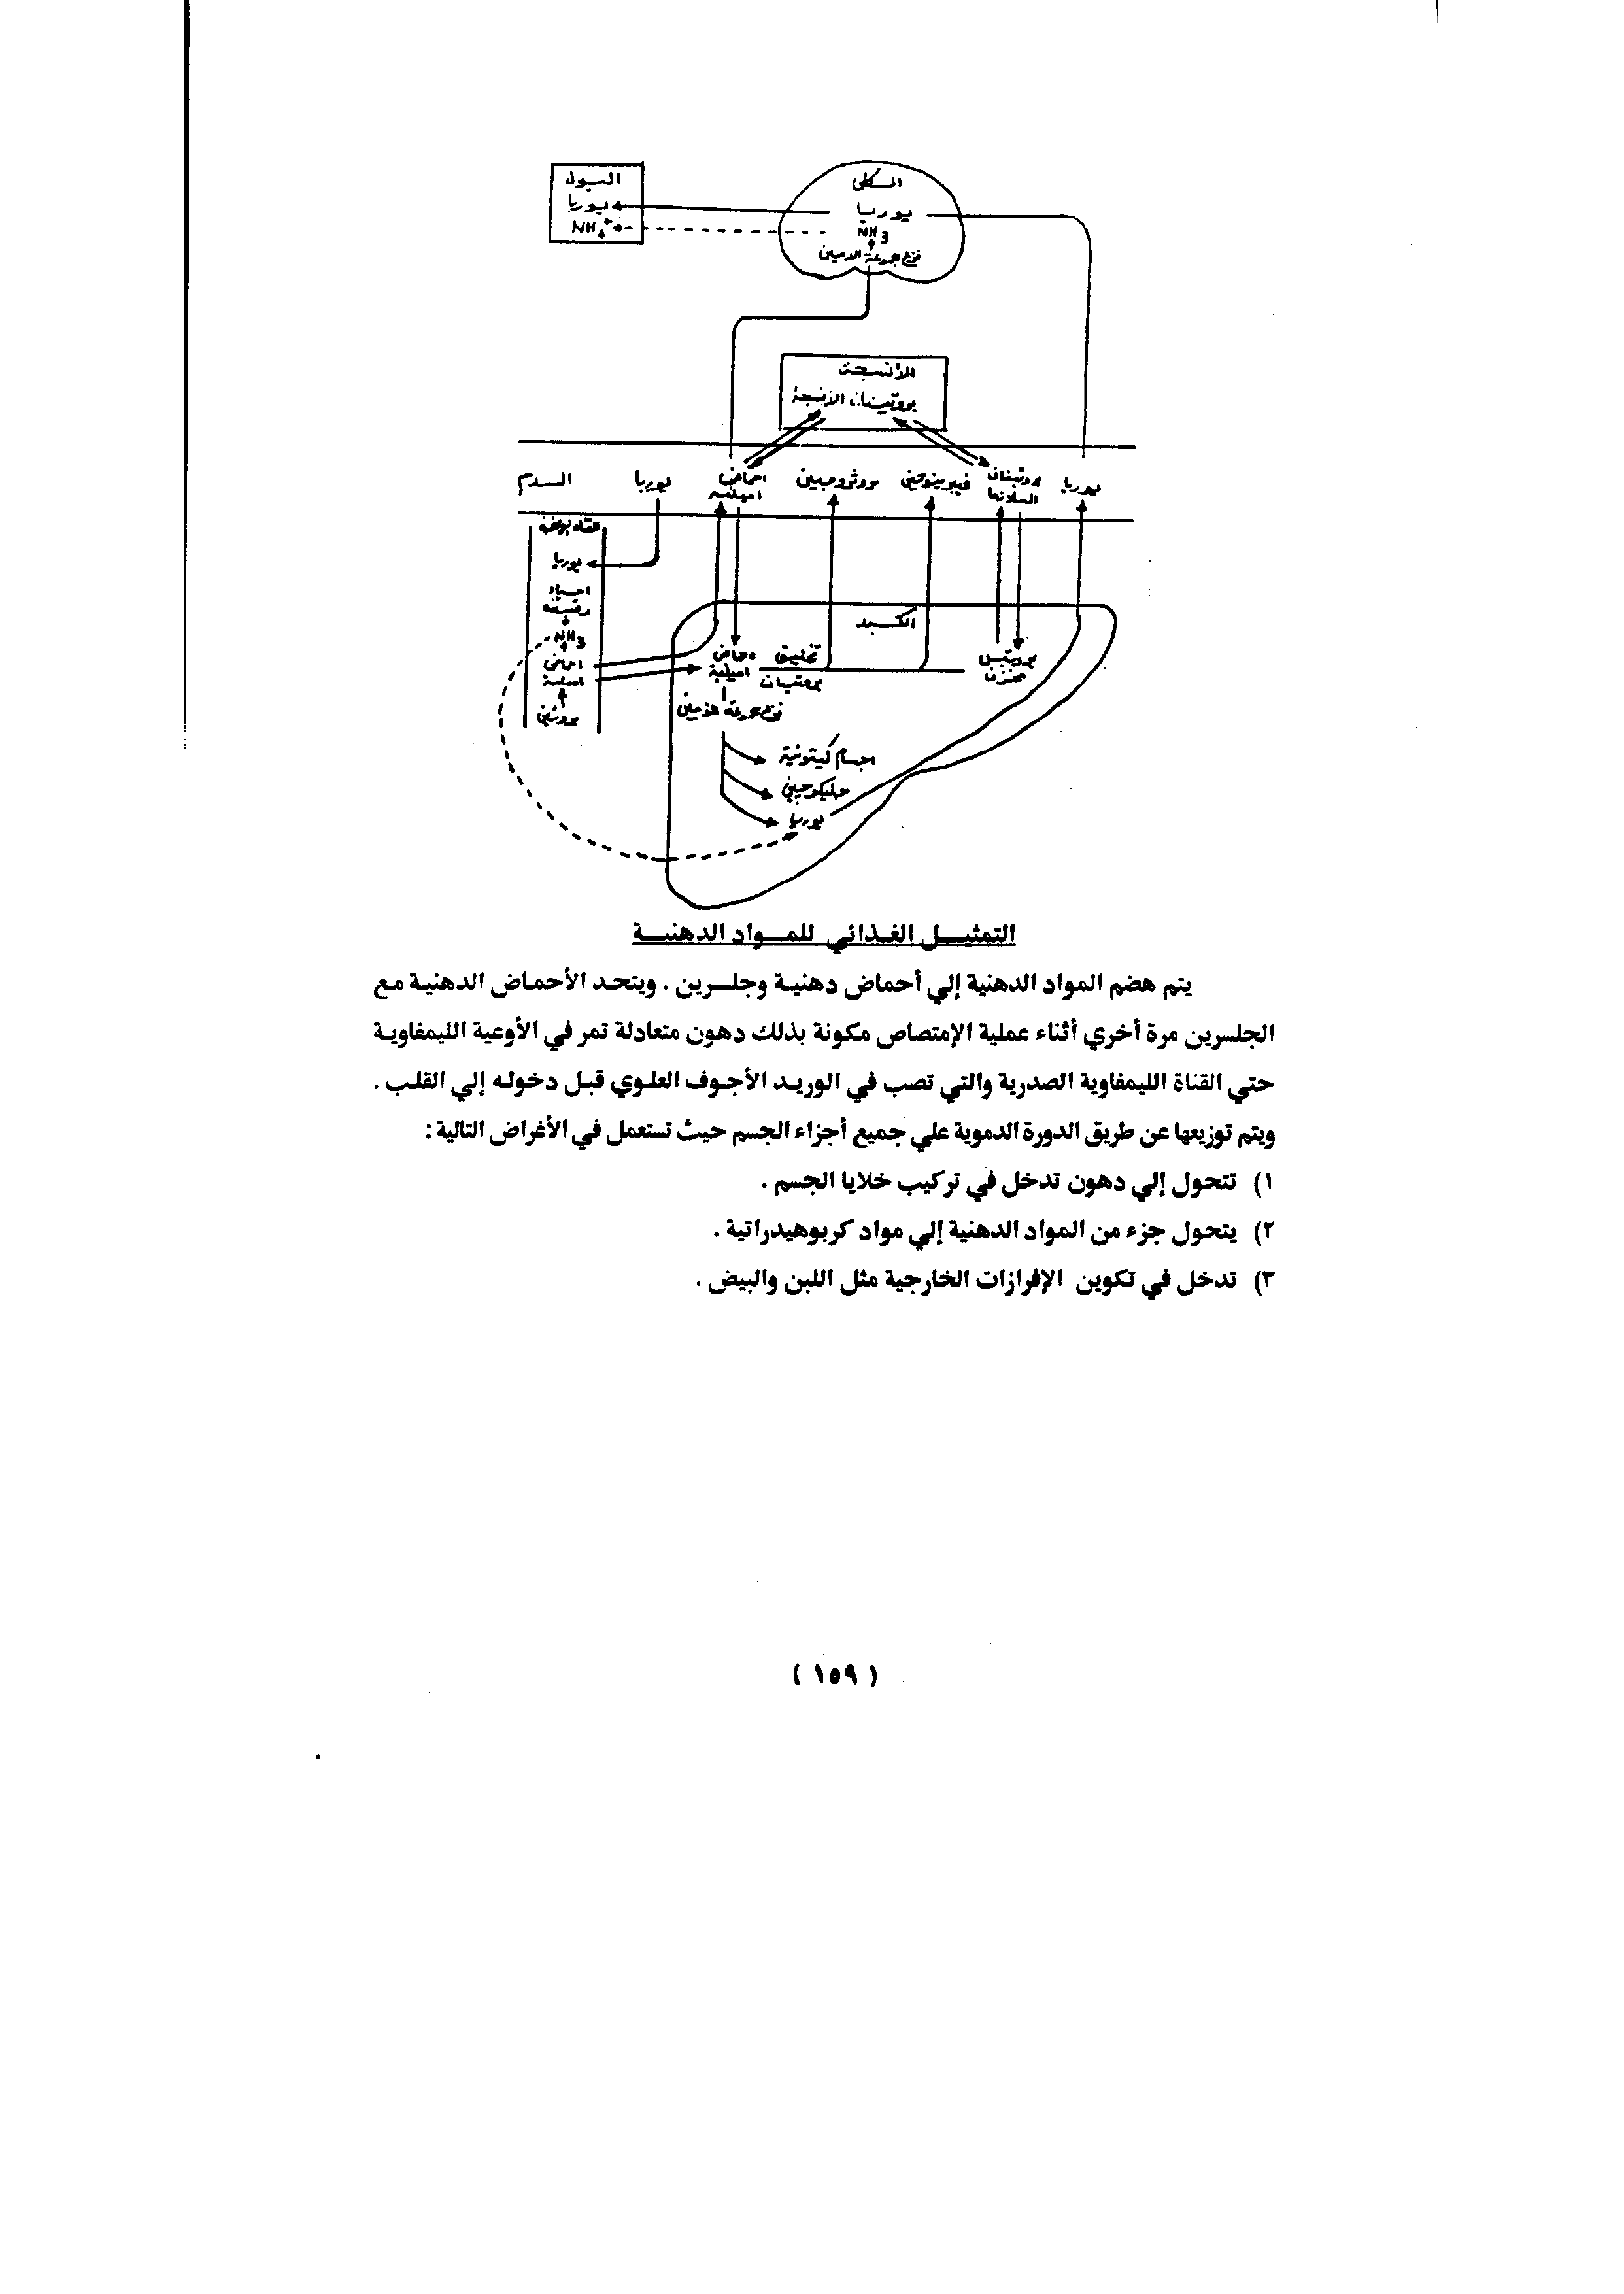 الكلى
البول
يوريا
يوريا
NH4+
NH3
نزع مجموعة الامين
الأنسجة
بروتينات الانسجة
يوريا
بروتينات
البلازما
فيبرينوجين
بروثرومبين
احماض
امينية
يوريا
الدم
القناه الهضمية
يوريا
احياء
دقيقة
NH3
احماض
امينية
بروتين
الكبد
بروتين
مخزن
تخليق
بروتينات
احماض
امينية
نزع مجموعة الامين
اجسام كيتونية
جليكوجين
يوريا
التمثيـــل الغـذائي للمـــواد الدهنيـــة
يتم هضم المواد الدهنية إلي أحماض دهنية وجلسرين . ويتحد الأحماض الدهنية مع
الجلسرين مرة أخري أثناء عملية الإمتصاص مكونة بذلك دهون متعادلة تمر في الأوعية الليمفاوية
حتي القناة الليمفاوية الصدرية والتي تصب في الوريد الأجوف العلوي قبل دخوله إلي القلب .
ويتم توزيعها عن طريق الدورة الدموية علي جميع أجزاء الجسم حيث تستعمل في الأغراض التالية :
١) تتحول إلي دهون تدخل في تركيب خلايا الجسم .
٢) يتحول جزء من المواد الدهنية إلي مواد كربوهيدراتية .
٣) تدخل في تكوين الإفرازات الخارجية مثل اللبن والبيض .
( ١٥٩ )